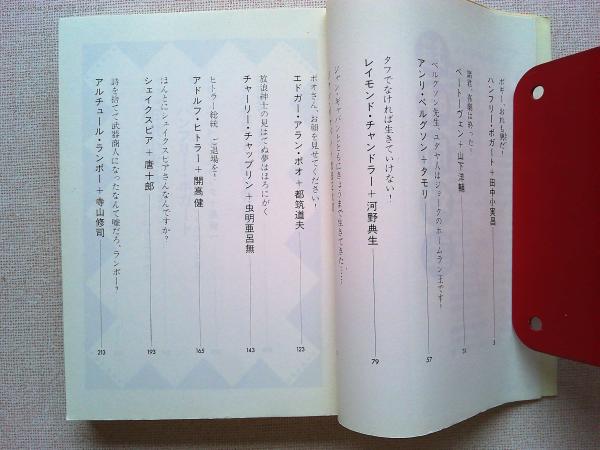 ボギー、おれも男だ!
ハンフリー・ボガート+田中小実昌
3
諸君、喜劇は終った!
ベートーヴェン+山下洋輔
31
ベルグソン先生、ユダヤ人はジョークのホームラン王です!
アンリ・ベルグソン+タモリ
57
タフでなければ生きていけない!
レイモンド・チャンドラー+河野典生
79
ジャン・ギャバンとともにきょうまで生きてきた……
ポオさん、お顔を見せてください!
エドガー・アラン・ポオ+都筑道夫
123
放浪紳士の見はてぬ夢はほろにがく
チャーリー・チャップリン+虫明亜呂無
143
ヒトラー総統、ご退場を!
アドルフ・ヒトラー+開高健
165
ほんとにシェイクスピアさんなんですか?
シェイクスピア+唐十郎
193
詩を捨てて武器商人になったなんて嘘だろ、ランボー?
アルチュール・ランボー+寺山修司
213